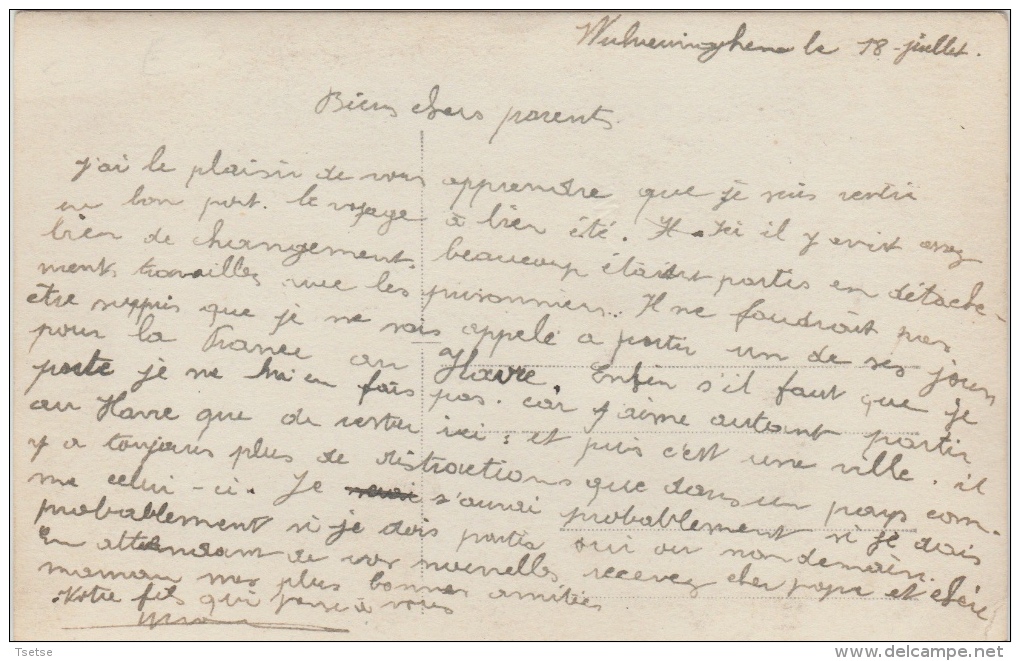 Wulveringhem le 18 juillet.
Bien chers parents.
J'ai le plaisir de vous apprendre que je suis rentré
en bon port. le voyage à bien été. Ici il y avait assez
bien de changement. beaucoup étaient partis en détache-
ments travailler avec les prisonniers. Il ne faudrait pas
être surpris que je ne sois appelé a partir un de ses jours
pour la France au Havre. Enfin s'il faut que je
parte je ne m'en fais pas. car j'aime autant partir
au Havre que de rester ici : et puis c'est une ville. il
y a toujours plus de distractions que dans un pays com-
me celui-ci. Je s'aurai probablement si je dois
probablement si je dois partir oui ou non demain.
En attendant de vos nouvelles, recevez cher papa et chère
maman mes plus bonnes amitiés
Votre fils qui pense à vous
Tsetse
delcampe.net